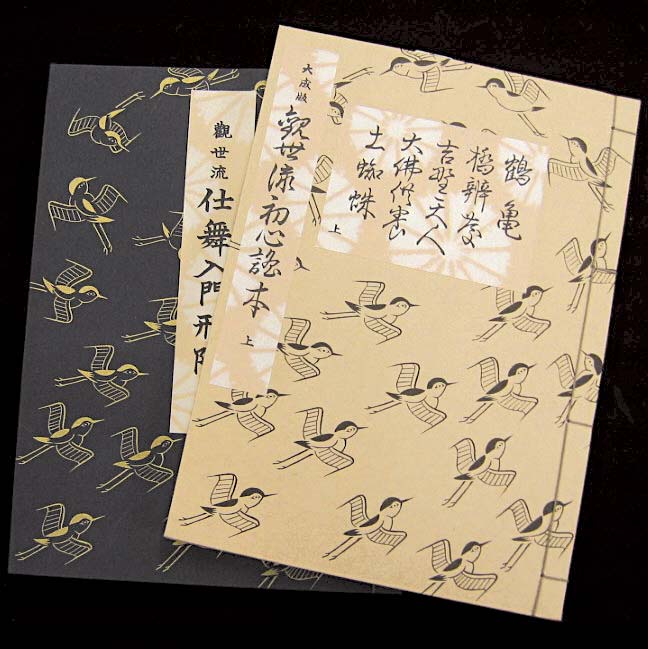 鶴亀
橋辨慶
吉野天人
大佛供養
土蜘蛛
上
大成版
觀世流初心謠本
上
觀世流
仕舞入門形